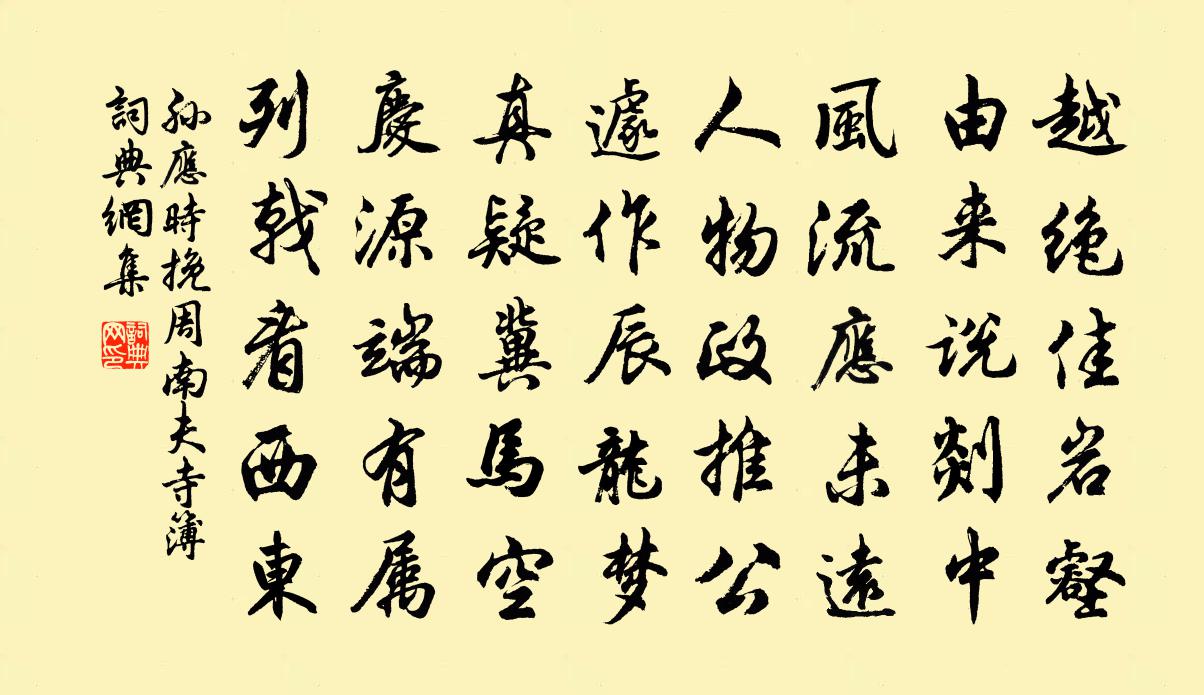 越絶佳岩壑
由来説剡中
風流應未遠
人物政推公
遽作辰龍梦
真疑冀馬空
慶源端有属
列戟看西東
孫應時挽周南夫寺簿
詞典網集
詞典网印